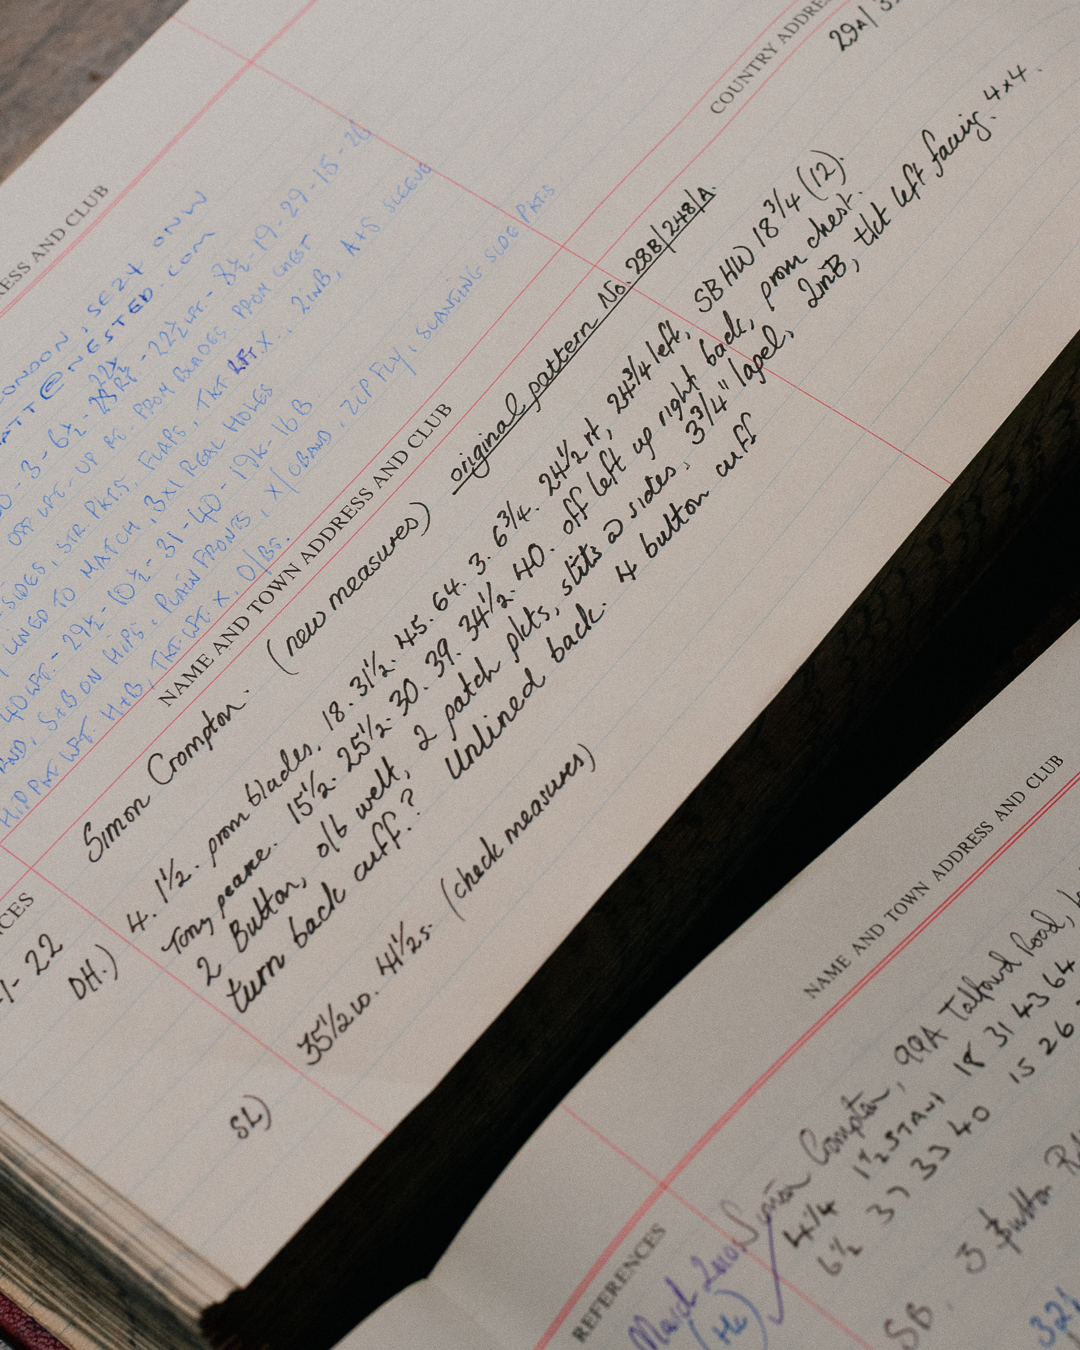 RESS AND CLUB
COUNTRY ADDRE
29A/3
LONDON, SE24 0NW
ATT@NESTED.COM
3 - 6½ - 22½ - 8½ - 19 - 29 - 15 - 26
OFF LFT - UP RT. PROM BLADES PROM CHEST
SIDES, STR. PKTS, FLAPS, TKT LFT X.., 2INB, A+S SLEEVE
LINED TO MATCH, 3x1 REAL HOLES
40 WFT. - 29½ - 10½ - 31 - 40 - 19¼ - 16B
S+B ON HIPS, PLAIN FRONTS, X/OBAND, ZIP FLY, SLANTING SIDE PKTS
HIP PKT LFT. H+B, TKT LFT X, O/BS.
NAME AND TOWN ADDRESS AND CLUB
Simon Crompton. (new measures) original pattern No. 28B/248/A.
1-22
DH.) 4. 1½. prom blades, 18. 31½. 45. 64. 3. 6¾. 24½ rt, 24¾ left, SB HW 18¾ (12).
Tony peare. 15½. 25½. 30. 39. 34½. 40. off left up right back, prom chest.
2 Button, o/b welt, 2 patch pkts, slits @ sides, 3¾" lapel, 2inB, tkt left facing. 4x4.
turn back cuff.? Unlined back. 4 button cuff
SL) 35½ w. 41½s. (check measures)
NAME AND TOWN ADDRESS AND CLUB
REFERENCES
March 2010
(Hc)
Simon Crompton, 99A Talfourd Road,
4¼ 1½ STAND 18 31 43 64
6½ 37 33 40 15 26
SB. 3 Button
32½